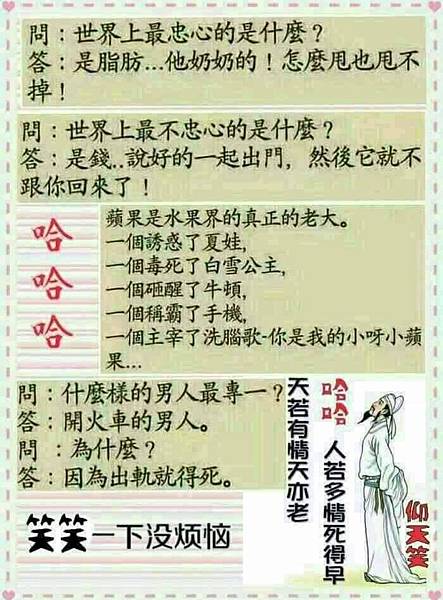 問：世界上最忠心的是什麼？
答：是脂肪...他奶奶的！怎麼甩也甩不
掉！
問：世界上最不忠心的是什麼？
答：是錢..說好的一起出門，然後它就不
跟你回來了！
哈
哈
哈
蘋果是水果界的真正的老大。
一個誘惑了夏娃,
一個毒死了白雪公主,
一個砸醒了牛頓,
一個稱霸了手機,
一個主宰了洗腦歌-你是我的小呀小蘋
果...
問：什麼樣的男人最專一？
答：開火車的男人。
問：為什麼？
答：因為出軌就得死。
哈哈
人若多情死得早
天若有情天亦老
仰天笑
笑笑一下没烦恼